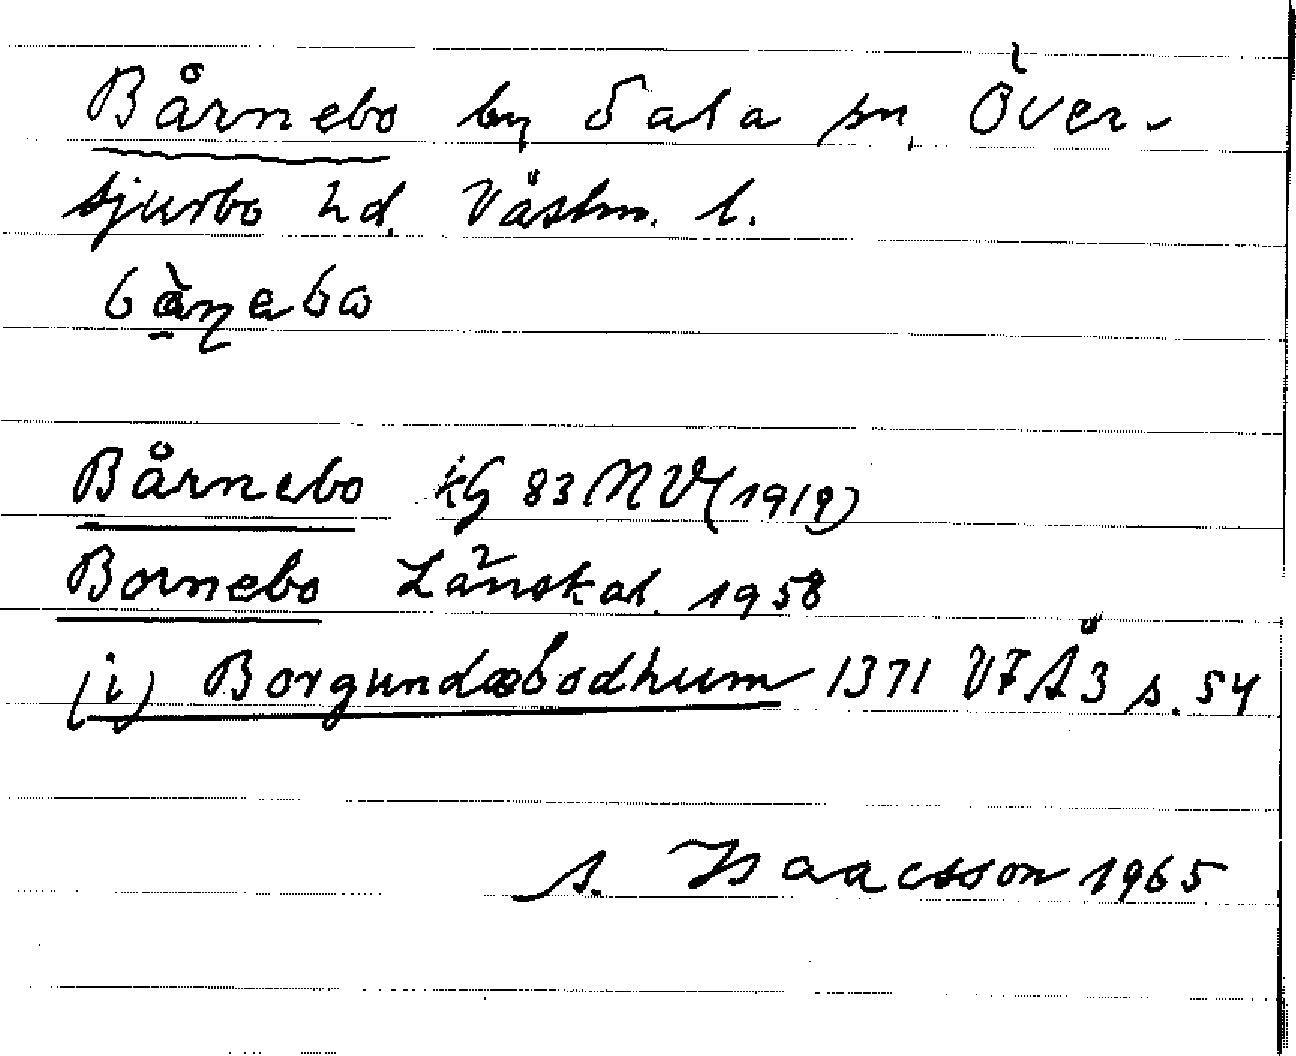 Bårnebo by Sala sn, Över-
tjurbo hd. Västm. l.
Bårnebo kG 83 NV (1919)
Bornebo Länskal. 1958
(i) Borgundæbodhum 1371 VFÅ 3 s. 54
S. Isaacsson 1965